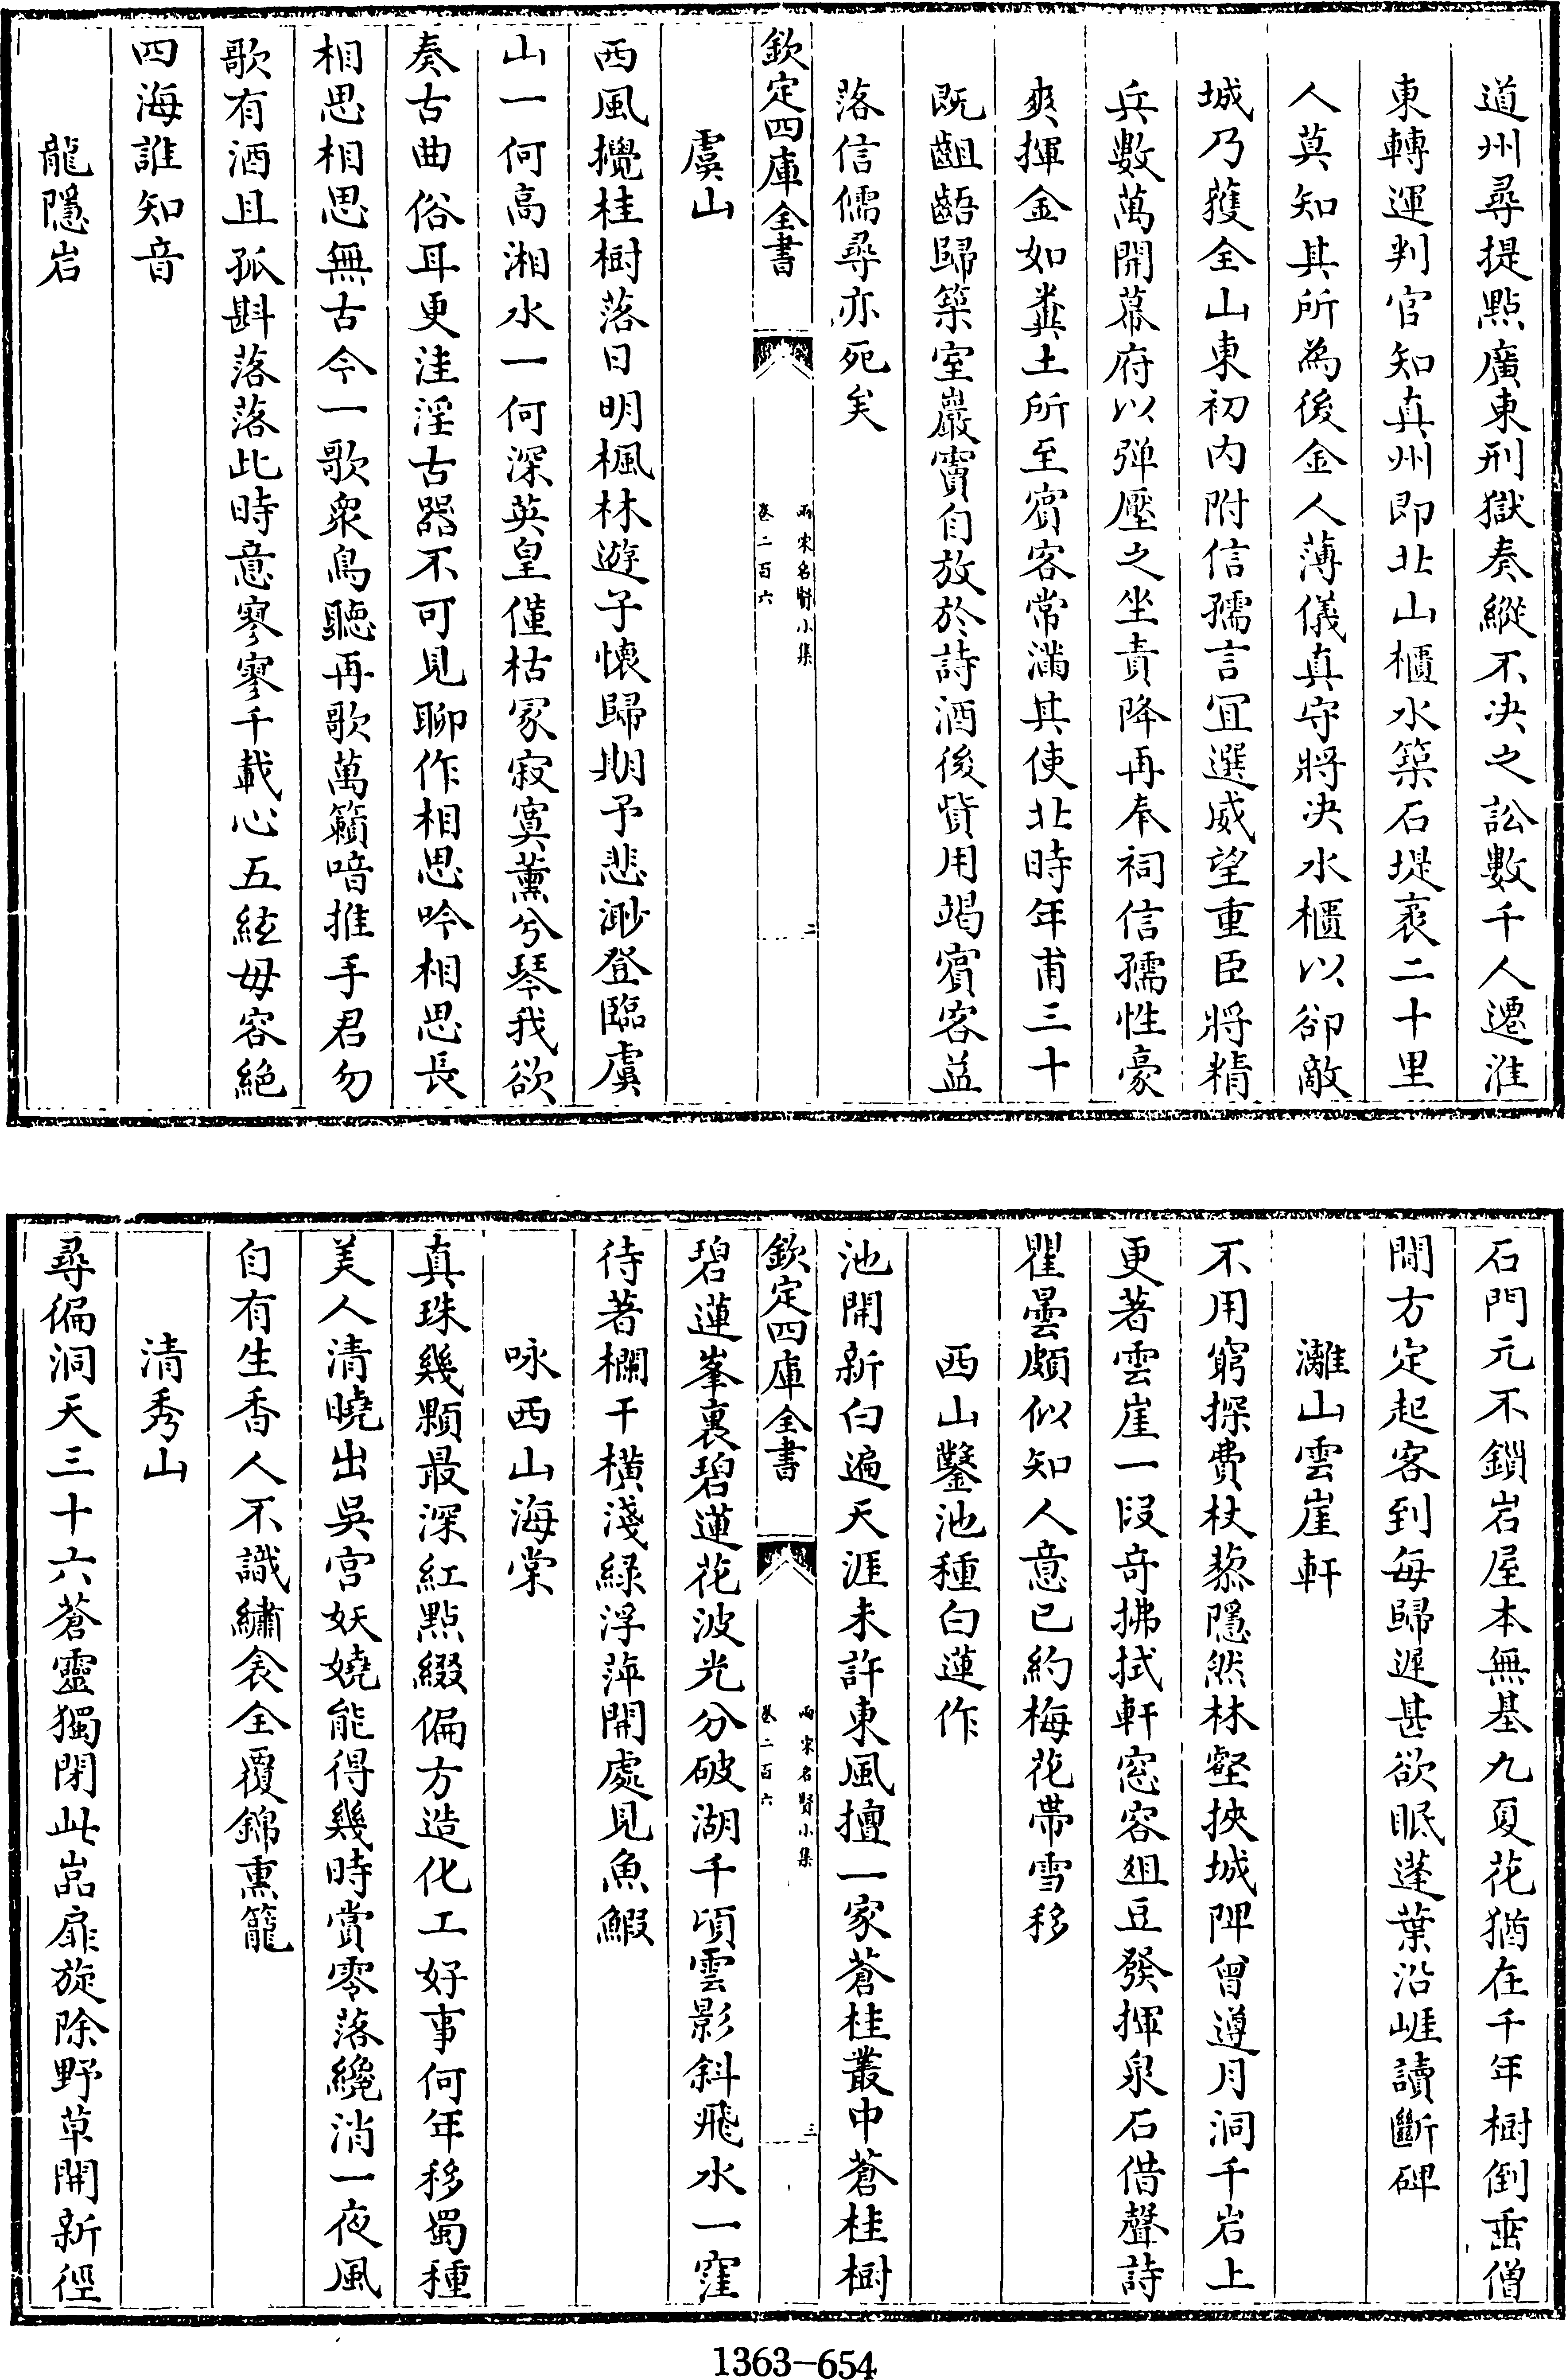 道州尋提點廣東刑獄奏縱不决之訟數千人遷淮
東轉運判官知真州即北山櫃水築石堤袤二十里
人莫知其所為後金人薄儀真守將决水櫃以卻敵
城乃獲全山東初内附信孺言宜選威望重臣將精
兵數萬開幕府以彈壓之坐責降再奉祠信孺性豪
爽揮金如糞土所至賓客常滿其使北時年甫三十
既齟齬歸築室巖竇自放於詩酒後貲用竭賓客益
落信儒尋亦死矣
欽定四庫全書
兩宋名賢小集
卷二百六
二
虞山
西風攪桂樹落日明楓林遊子懷歸期予悲渺登臨虞
山一何高湘水一何深英皇僅枯冢寂寞薰兮琴我欲
奏古曲俗耳更洼淫古器不可見聊作相思吟相思長
相思相思無古今一歌衆鳥聽再歌萬籟喑推手君勿
歌有酒且孤斟落落此時意寥寥千載心五絃毋容絶
四海誰知音
龍隱岩
石門元不鎖岩屋本無基九夏花猶在千年樹倒垂僧
閒方定起客到每歸遲甚欲眠蓬葉沿崕讀斷碑
灕山雲崖軒
不用窮探費杖藜隱然林壑挾城陴曾遵月洞千岩上
更著雲崖一段奇拂拭軒窓容俎豆發揮泉石借聲詩
瞿曇頗似知人意已約梅花帶雪移
西山鑿池種白蓮作
池開新白遍天涯未許東風擅一家蒼桂叢中蒼桂樹
欽定四庫全書
兩宋名賢小集
卷二百六
三
碧蓮峯裏碧蓮花波光分破湖千頃雲影斜飛水一窪
待著欄干橫淺緑浮萍開處見魚鰕
咏西山海棠
真珠幾顆最深紅點綴偏方造化工好事何年移蜀種
美人清曉出吳宫妖嬈能得幾時賞零落纔消一夜風
自有生香人不識繡衾全覆錦熏籠
清秀山
尋徧洞天三十六蒼靈獨閉此嵓扉旋除野草開新徑
1363-654